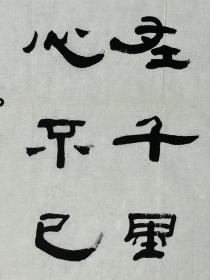 在千里
心不已